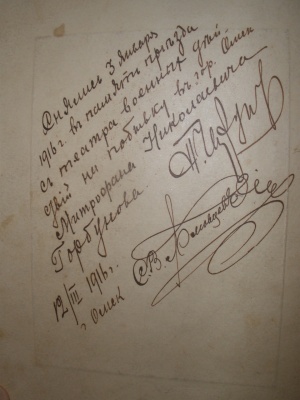 Снялись 3 января
1916 г. въ память приѣзда
съ театра военныхъ дѣй-
ствій на побывку въ гор. Омск
Митрофана Николаевича
Горбунова
12/III 1916 г.
г. Омск